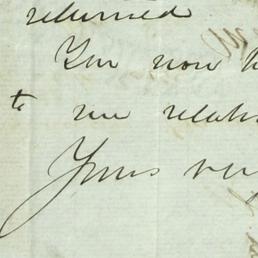 returned
You now
to me relat
Yours ver